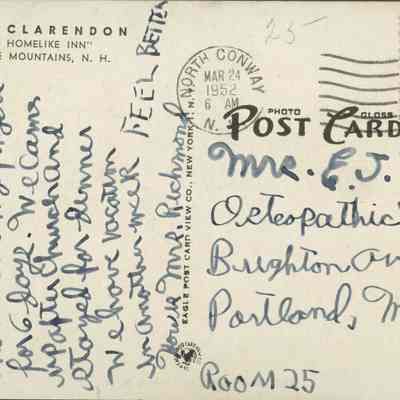 CLARENDON
HOMELIKE INN"
MOUNTAINS, N. H.
for 6 days. We came
up after church and
stayed for dinner
We have vacation
in another week
Yours Mrs. Richmond
FEEL BETTER
EAGLE POST CARD VIEW CO., NEW YORK 1, N.Y.
25
NORTH CONWAY
MAR 24
6 AM
1952
N.
PHOTO
GLOSS
POST CARD
Mrs. E. J.
Osteopathic
Brighton Av
Portland, M
ROOM 25